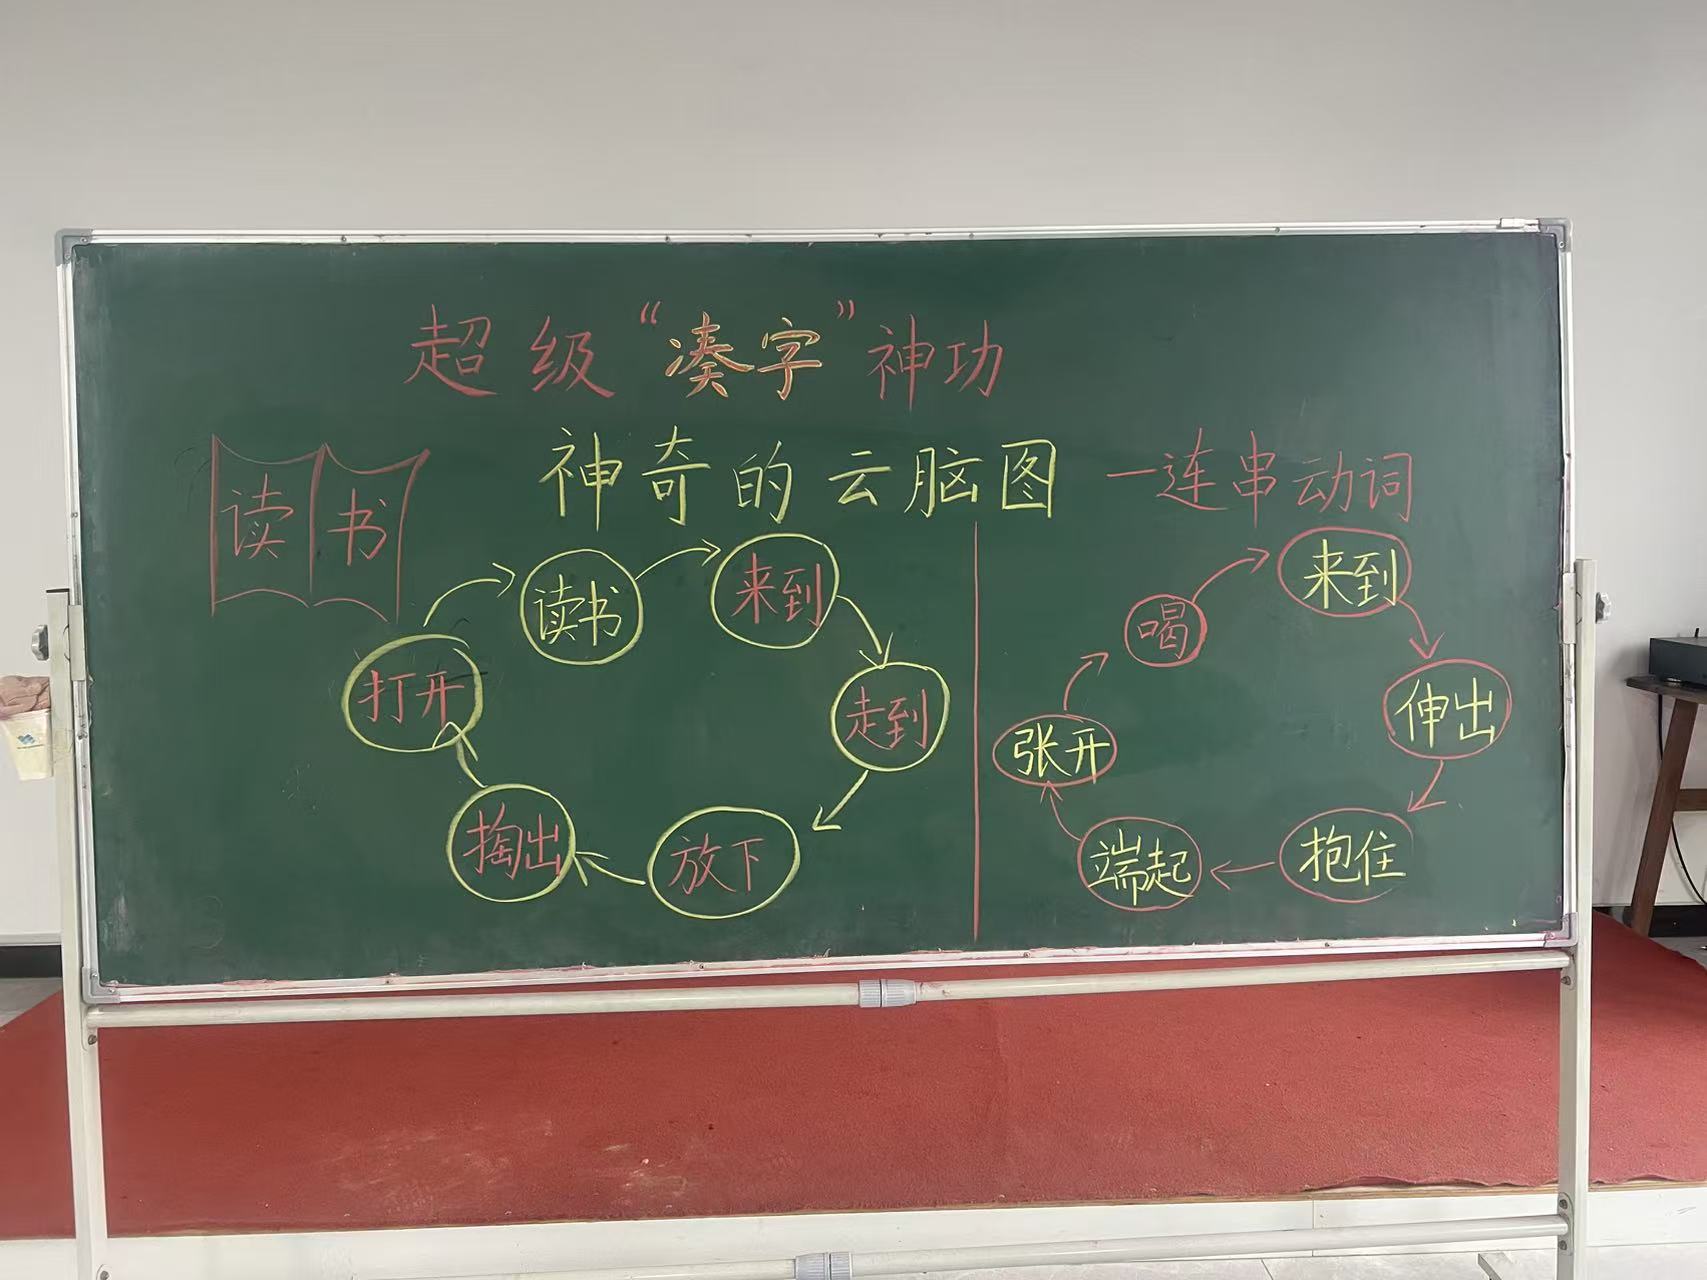 超级“凑字”神功
神奇的云脑图
一连串动词
读书
读书
来到
走到
放下
掏出
打开
来到
伸出
抱住
端起
张开
喝